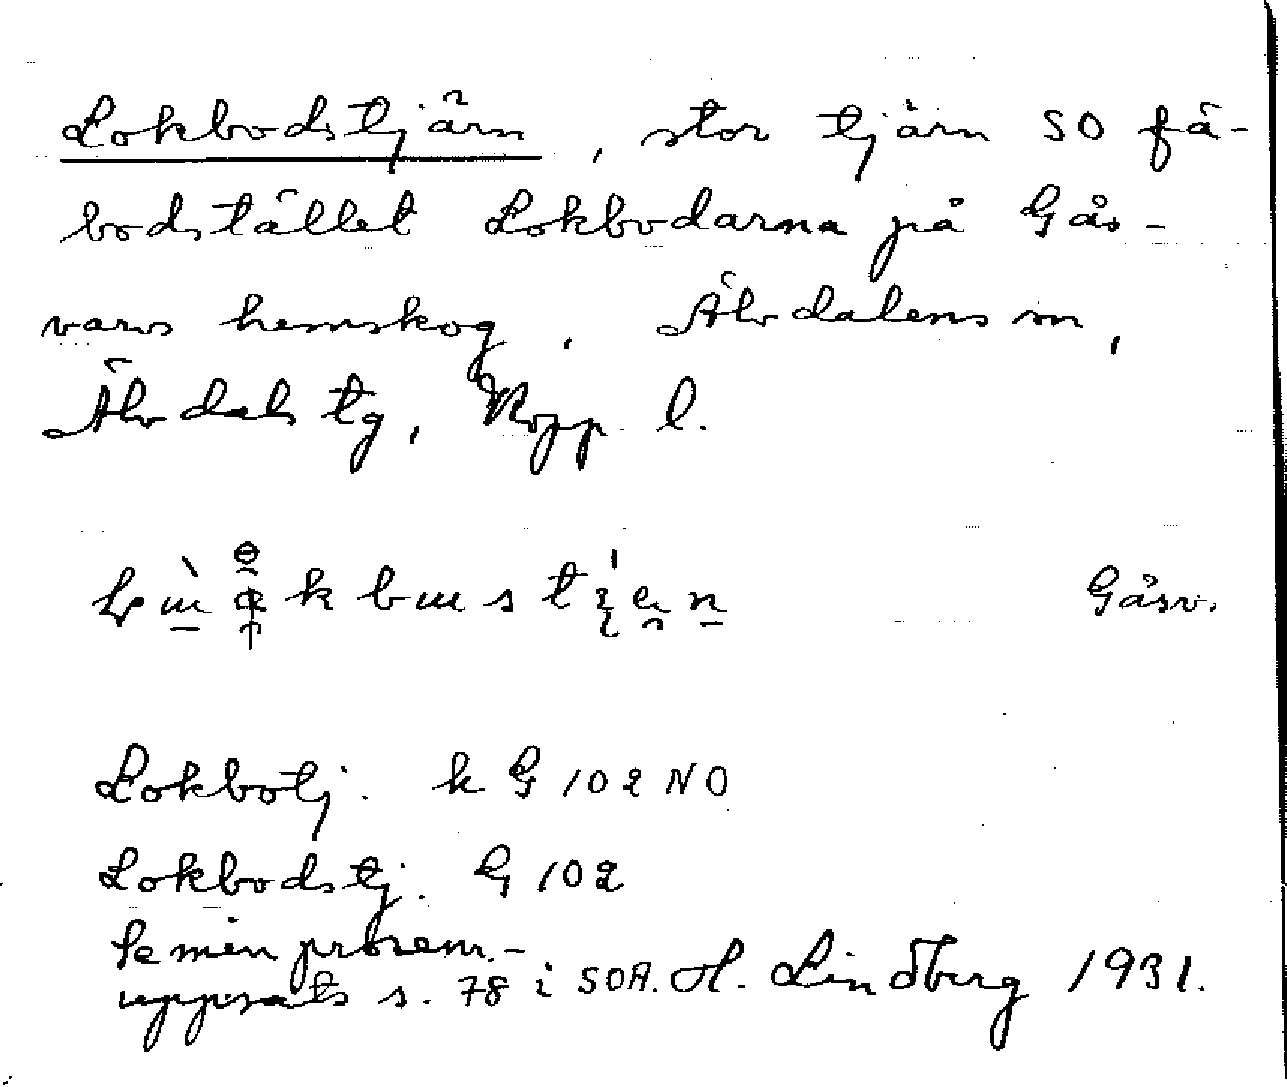 Lokbodstjärn, stor tjärn SO fä-
bodstället Lokbodarna på Gås-
varvs hemskog. Älvdalens sn,
Älvdals tg, Kopp l.
Gåsv.
Lokbotj. k G 102 NO
Lokbodstj. G 102
Se min prosem.-
uppsats s. 78 i SOA. H. Lindberg 1931.